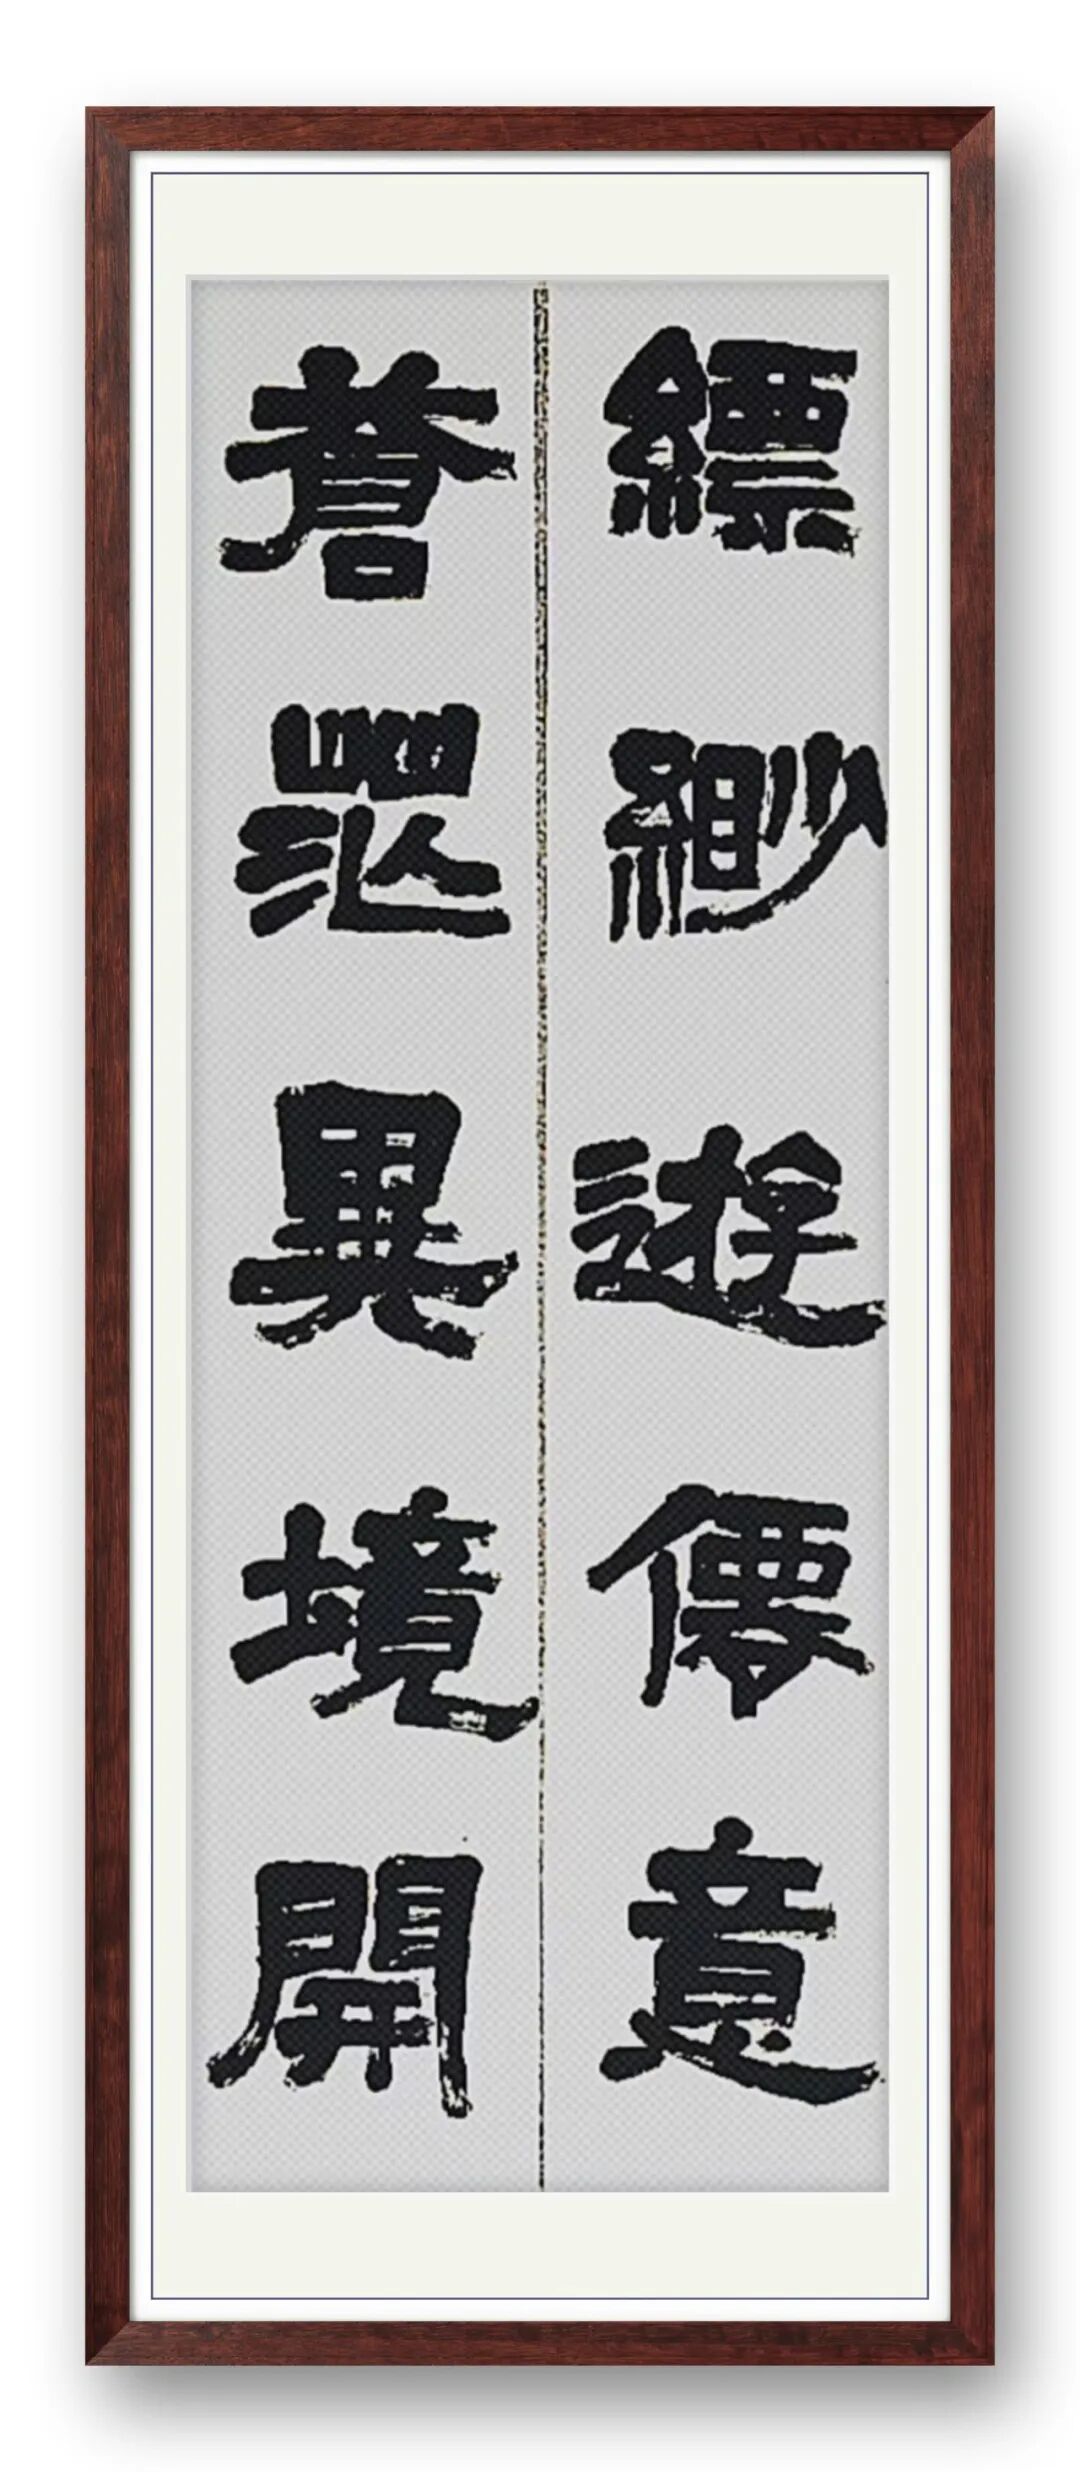 縹緲遊僊意
蒼茫異境開